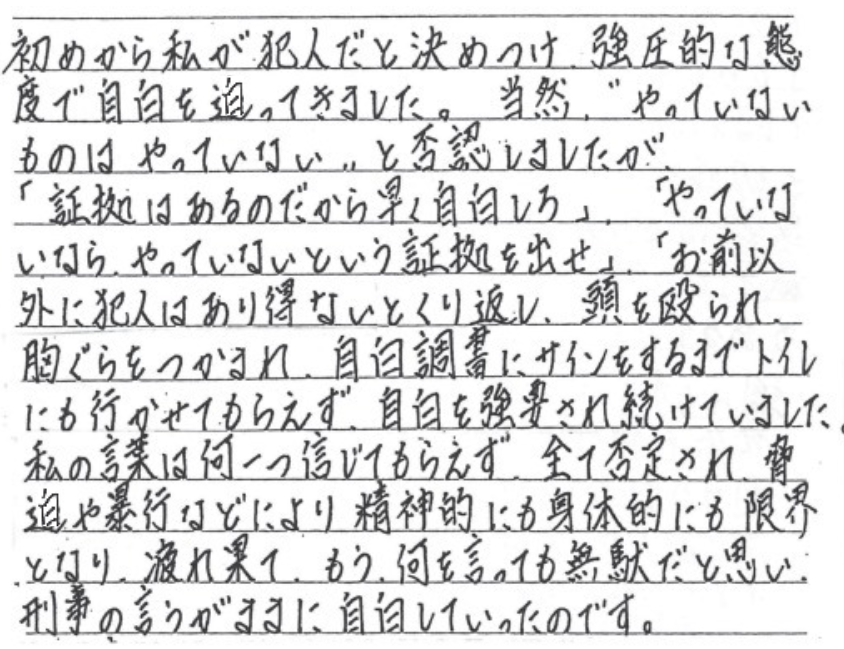 初めから私が犯人だと決めつけ、強圧的な態
度で自白を迫ってきました。当然、〝やっていない
ものはやっていない〟と否認しましたが、
「証拠はあるのだから早く自白しろ」、「やっていな
いなら、やっていないという証拠を出せ」、「お前以
外に犯人はあり得ないとくり返し、頭を殴られ、
胸ぐらをつかまれ、自白調書にサインをするまでトイレ
にも行かせてもらえず、自白を強要され続けていました。
私の言葉は何一つ信じてもらえず、全て否定され、脅
迫や暴行などにより精神的にも身体的にも限界
となり、疲れ果て、もう、何を言っても無駄だと思い、
刑事の言うがままに自白していったのです。